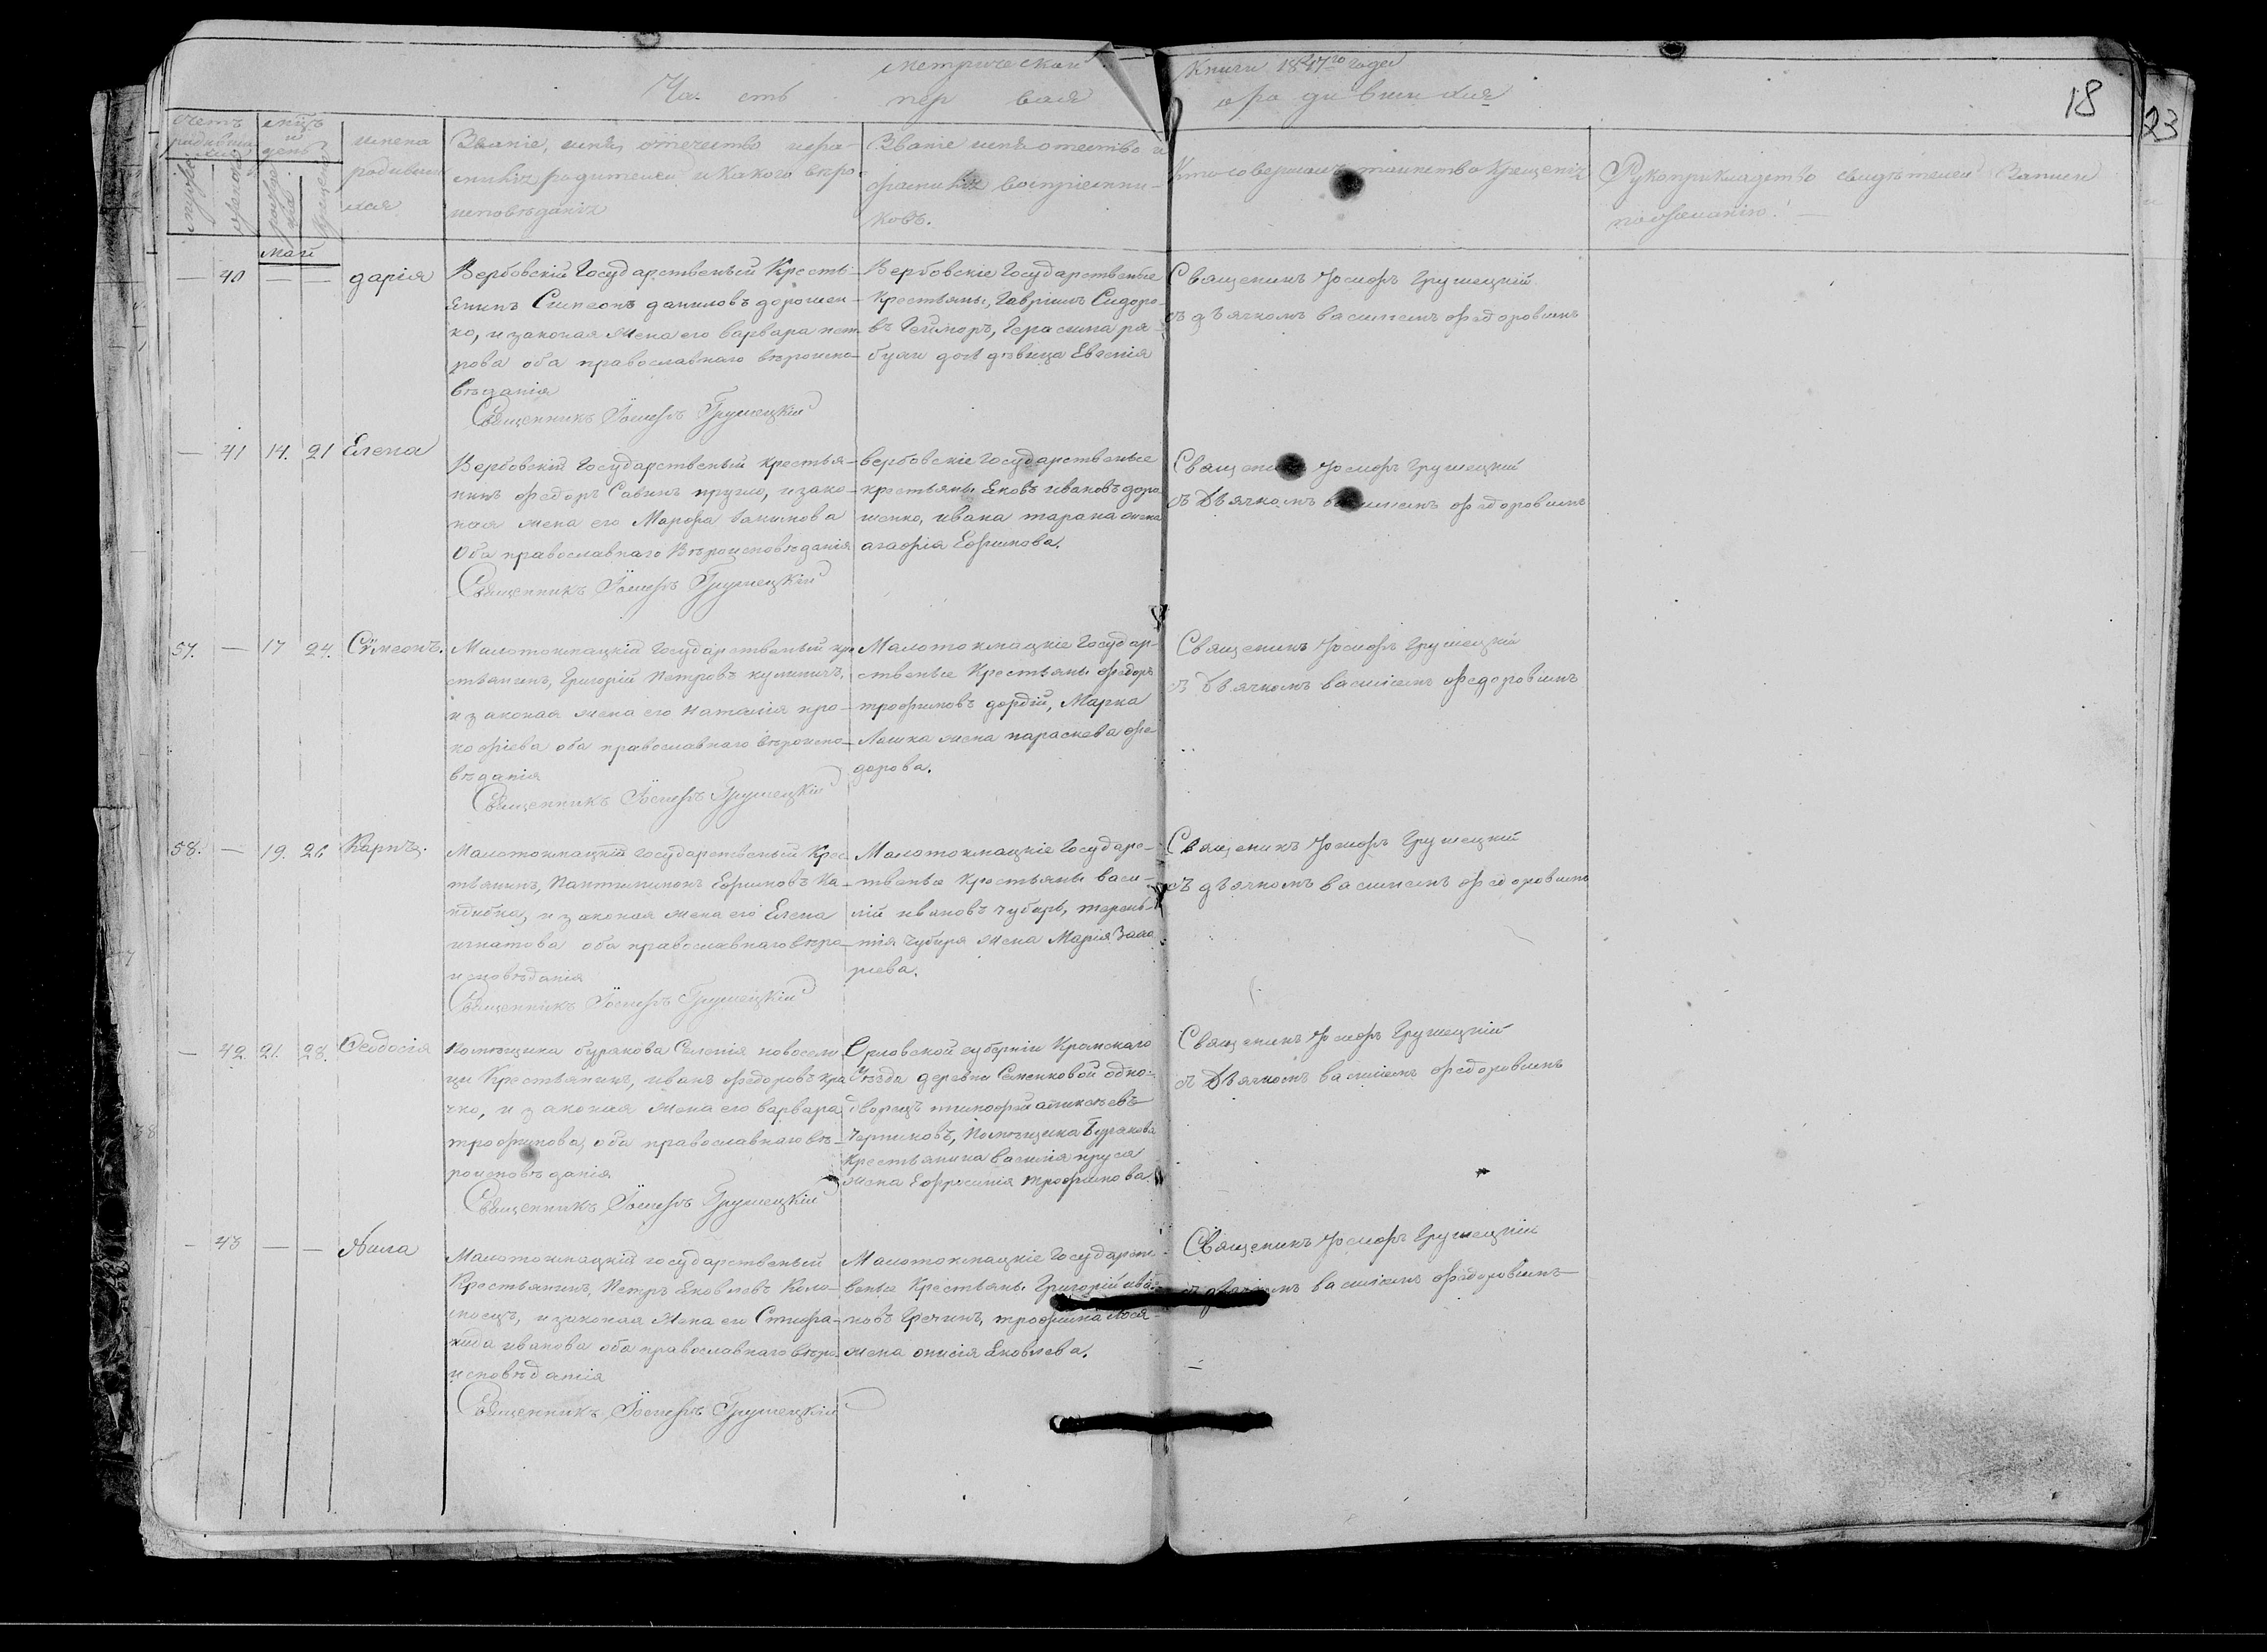 Метрической Книги 1847го года
Часть первая о родившихся
18
23
Счетъ родившихся
мужеска
женска
Мѣсяцъ и день
рожденія
крещенія
имена родившихся
Званіе, имя, отечество и фамилія родителей и какого вѣроисповѣданія
Званіе имя отечество и фамилія воспріемниковъ.
Кто совершалъ таинство Крещенія
Рукоприкладство свидѣтелей записи по желанію.
май
— 40 — — дарія
Вербовскій Государственый Кресть-
янинъ Симеонъ даниловъ дорошен-
ко, и законая жена его варвара пет-
рова оба православнаго вѣроиспо-
вѣданія
Священникъ Іосифъ Грушецкій
Вербовскіе Государственые
Крестьяны, Гавріилъ Сидоро-
въ Гейморъ, Герасима ря-
бухи дочь дѣвица Евгенія
Священикъ Іосифъ Грушецкій
съ дѣячкомъ василіемъ федоровымъ
— 41 14. 21 Елена
Вербовскій Государственый крестья-
нинъ федоръ Савинъ кругло, и зако-
ная жена его Марфа
Оба православнаго Вѣроисповѣданія
Священникъ Іосифъ Грушецкій
вербовскіе государственые
крестьяны Яковъ ивановъ доро-
шенко, ивана тарана жена
агафія Ефимова.
Священикъ Іосифъ Грушецкій
съ дѣячкомъ василіемъ федоровымъ
57. — 17 24. Сѵмеонъ.
Малотокмацкій Государственый кре-
стьянинъ, Григорій Петровъ куличъ,
и законая жена его наталія про-
кофіева оба православнаго вѣроиспо-
вѣданія
Священникъ Іосифъ Грушецкій
Малотокмацкіе Государ-
ственые Крестьяны федоръ
трофимовъ дордій, Марка
Ляшка жена параскева фе-
дорова.
Священикъ Іосифъ Грушецкій
съ дѣячкомъ василіемъ федоровымъ
58. — 19. 26 Карпъ.
Малотокмацкій государственый Крес-
тьянинъ, Пантилимонъ Ефимовъ Ка-
и законая жена его Елена
игнатова оба православнаго вѣро-
исповѣданія
Священникъ Іосифъ Грушецкій
Малотокмацкіе Государс-
твеные Крестьяны васи-
лій ивановъ чубарь, терень-
тія чубаря жена Марія Заха
ріева.
Священикъ Іосифъ Грушецкій
съ дѣячкомъ василіемъ федоровымъ
— 42. 21. 28. Феодосія
Помѣщика бурякова Селенія новосели
ци Крестьянинъ, иванъ федоровъ кра
чко, и законая жена его варвара
трофимова, оба православнаго вѣ-
роисповѣданія
Священникъ Іосифъ Грушецкій
Орловской губерніи Кромскаго
Уѣзда деревни Семенковой одно-
дворецъ тимофей алиексѣевъ
Чериковъ, Помѣщика Бурякова
Крестьянина василія пруса
жена Ефросинія трофимова.
Священикъ Іосифъ Грушецкій
съ дѣячкомъ василіемъ федоровымъ
— 43 — — Алла
Малотокмацкій государственый
Крестьянинъ, Петръ Яковлевъ Коло-
и законая жена его Стифа-
нида иванова оба православнаго вѣро-
исповѣданія
Священникъ Іосифъ Грушецкій
Малотокмацкіе Государст-
веные Крестьяны Григорій ива-
новъ Гречинъ, трофима Лося
жена онисія Яковлева.
Священикъ Іосифъ Грушецкій
съ дѣячкомъ василіемъ федоровымъ